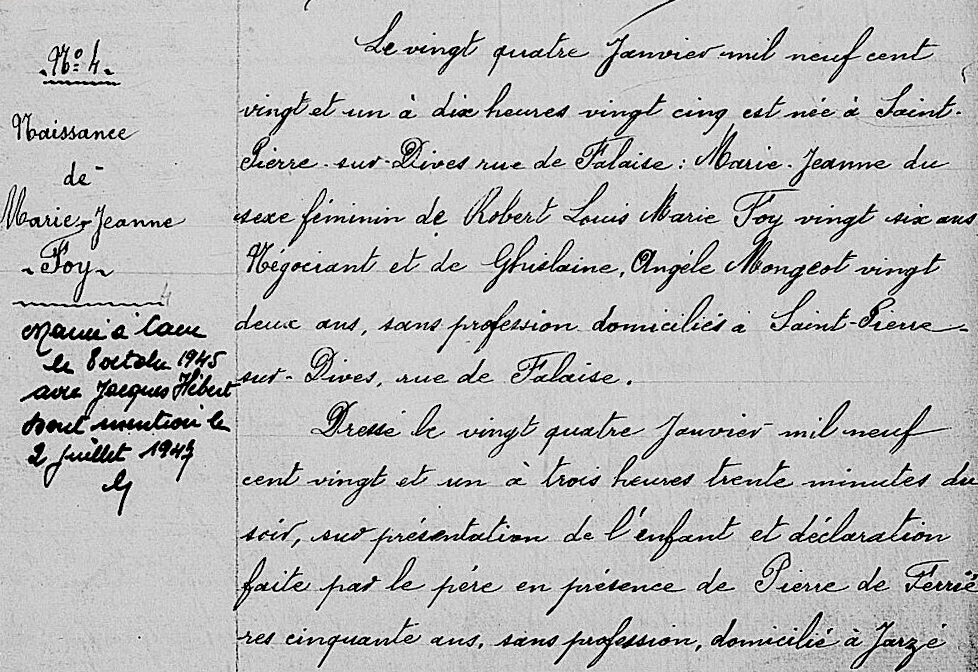 N° 4.
Naissance
de
Marie-Jeanne
Foy
Mariée à Caen
le 8 octobre 1945
avec Jacques Hébert
Dont mention le
2 juillet 1947
Le vingt quatre Janvier mil neuf cent
vingt et un à dix heures vingt cinq est née à Saint-
Pierre-sur-Dives rue de Falaise : Marie-Jeanne du
sexe féminin de Robert Louis Marie Foy vingt six ans
Négociant et de Ghislaine, Angèle Mongeot vingt
deux ans, sans profession domiciliés à Saint-Pierre-
sur-Dives, rue de Falaise.
Dressé le vingt quatre Janvier mil neuf
cent vingt et un à trois heures trente minutes du
soir, sur présentation de l'enfant et déclaration
faite par le père en présence de Pierre de Ferriè
res cinquante ans, sans profession, domicilié à Jarzé